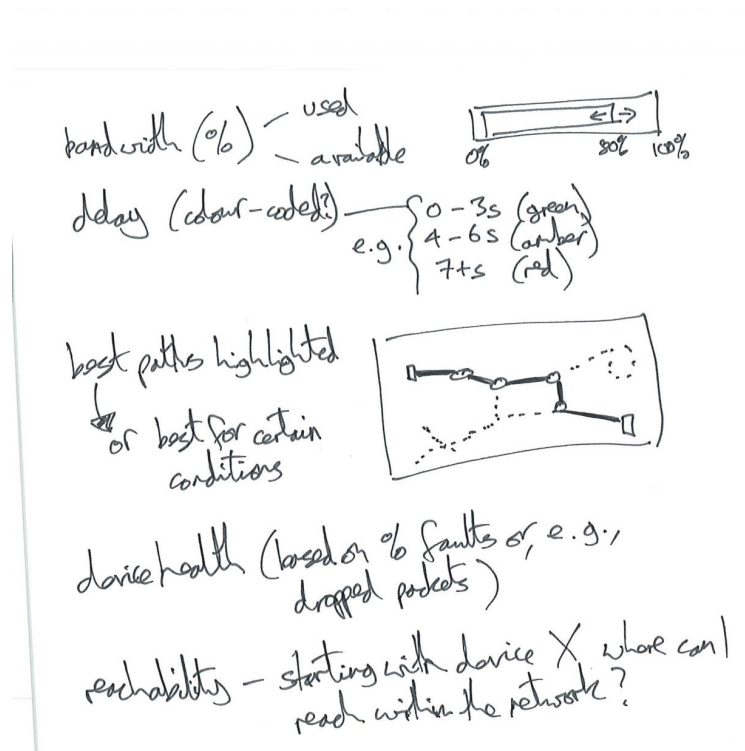 bandwidth (%) - used
- available
0% 80% 100%
delay (colour-coded?)
e.g. 0-3s (green)
4-6s (amber)
7+s (red)
best paths highlighted
or best for certain
conditions
device health (based on % faults or, e.g.,
dropped packets)
reachability - starting with device X where can I
reach within the network?